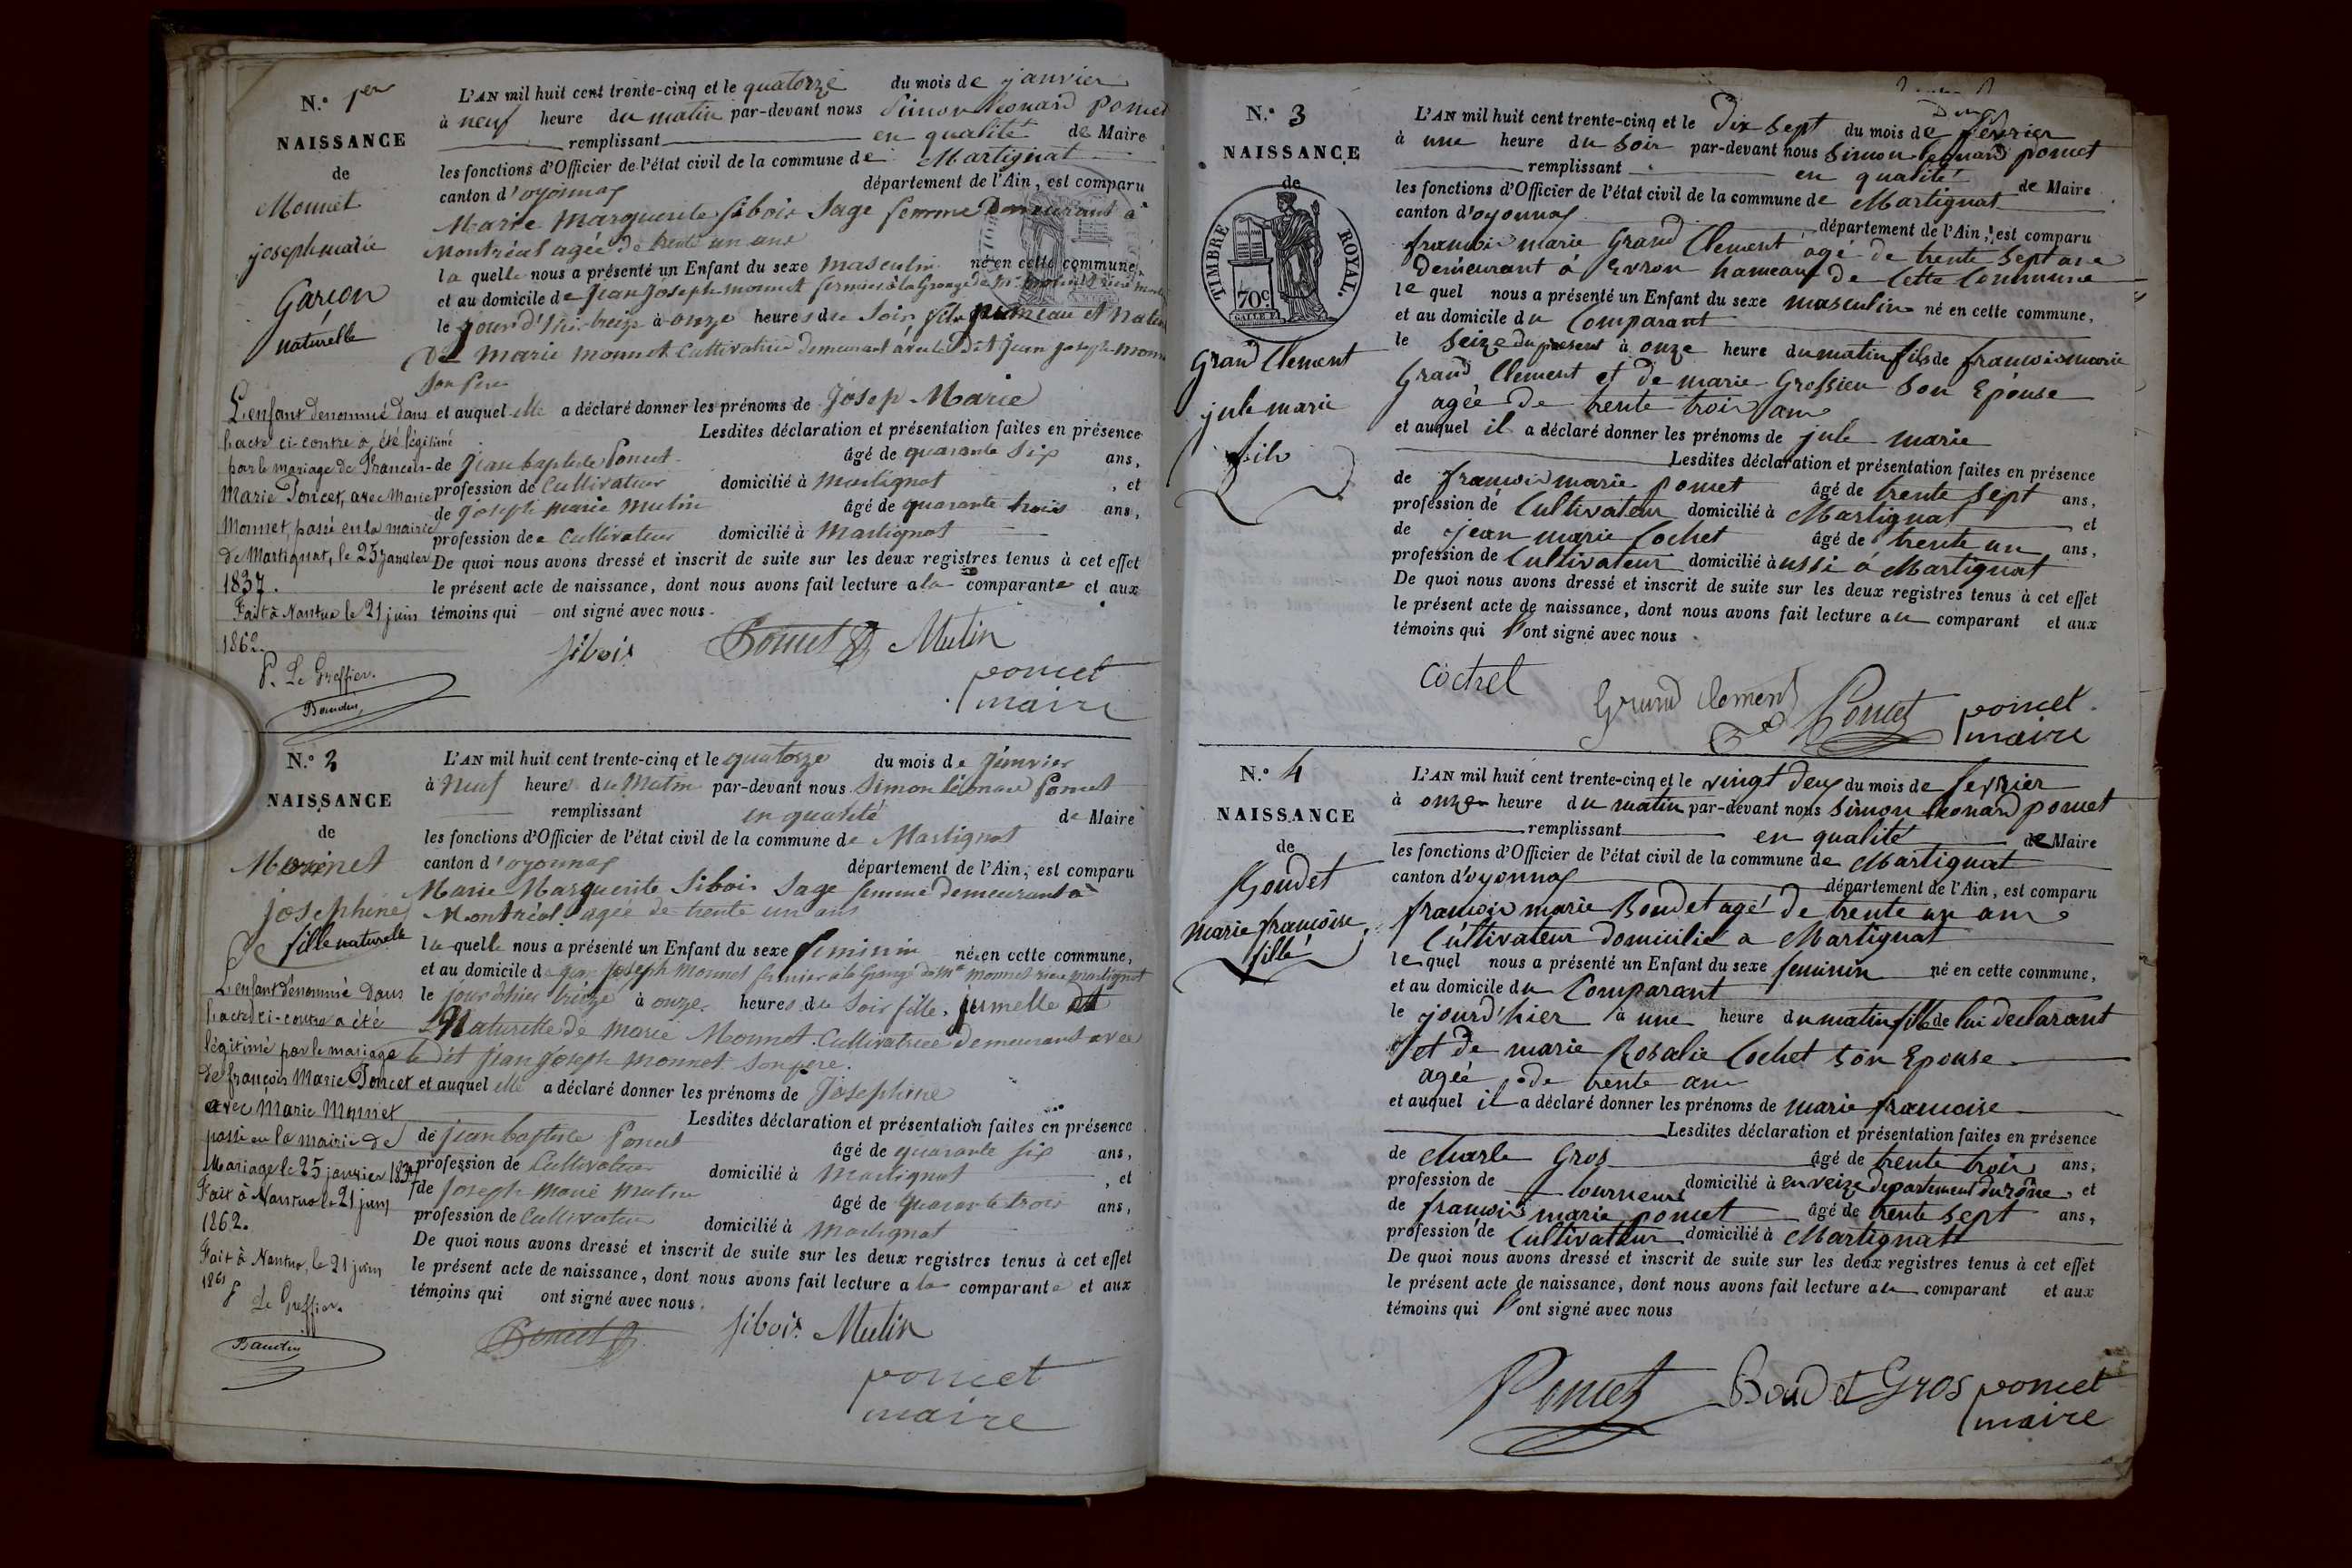 N.° 1er
NAISSANCE
de
Monnet
joseph marie
Garçon
naturelle
L'AN mil huit cent trente-cinq et le quatorze du mois de janvier
à neuf heure du matin par-devant nous Simon Leonard poncet
remplissant en qualité de Maire
les fonctions d'Officier de l'état civil de la commune de Martignat
canton d'oyonnax département de l'Ain, est comparu
Marie Marguerite Sibois Sage femme Demeurant à
Montréal agée de trente un ans
la quelle nous a présenté un Enfant du sexe masculin né en cette commune,
et au domicile de Jean Joseph monnet fermier à la Grange de Mr monnet rière
le jour d'hier treize à onze heures du Soir fils jumeau et
De Marie monnet Cultivatrice demeurant avec le Dit jean joseph
Son pere
et auquel elle a déclaré donner les prénoms de Josep-Marie
Lesdites déclaration et présentation faites en présence
de jean baptiste Poncet âgé de quarante six ans,
profession de Cultivateur domicilié à Martignat, et
de joseph marie Mutin âgé de quarante trois ans,
profession de Cultivateur domicilié à Martignat
De quoi nous avons dressé et inscrit de suite sur les deux registres tenus à cet effet
le présent acte de naissance, dont nous avons fait lecture a la comparante et aux
témoins qui ont signé avec nous.
Sibois Poncet Mutin
poncet
maire
L'enfant denommé dans
l'acte ci-contre a été légitimé
par le mariage de Francois-
Marie Poncet, avec Marie
Monnet, passé en la mairie
de Martignat, le 25 janvier
1837.
Fait à Nantua le 21 juin
1862.
P. Le Greffier.
Baudin
N.° 2
NAISSANCE
de
Monnet
josephine
fille naturelle
L'AN mil huit cent trente-cinq et le quatorze du mois de Janvier
à Neuf heures du Matin par-devant nous Simon léonard Poncet
remplissant en qualité de Maire
les fonctions d'Officier de l'état civil de la commune de Martignat
canton d'oyonnax département de l'Ain, est comparu
Marie Marguerite Sibois Sage femme demeurant à
Montréal agée de trente un ans
la quelle nous a présenté un Enfant du sexe feminin né en cette commune,
et au domicile de jean joseph Monnet fermier à la Grange de Mr monnet rière Martignat
le jour d'hier treize à onze heures du Soir fille, jumelle et
Naturelle de Marie Monnet Cultivatrice demeurant avec
le dit jean joseph monnet son pere.
et auquel elle a déclaré donner les prénoms de Josephine
Lesdites déclaration et présentation faites en présence
de jean baptiste Poncet âgé de quarante six ans,
profession de Cultivateur domicilié à Martignat, et
de Joseph Marie Mutin âgé de quarante trois ans,
profession de Cultivateur domicilié à Martignat
De quoi nous avons dressé et inscrit de suite sur les deux registres tenus à cet effet
le présent acte de naissance, dont nous avons fait lecture a la comparante et aux
témoins qui ont signé avec nous.
Poncet Sibois Mutin
poncet
maire
L'enfant dénommé dans
l'acte ci-contre a été
légitimé par le mariage
de françois Marie Poncet
avec Marie Monnet
passé en la mairie de
Mariage le 25 janvier 1837
Fait à Nantua le 21 juin
1862.
Fait à Nantua, le 21 juin
186
P Le Greffier.
Baudin
N.° 3
NAISSANCE
de
TIMBRE ROYAL.
70c.
Grand Clement
jule marie
fils
L'AN mil huit cent trente-cinq et le Dix Sept du mois de fevrier
à une heure du Soir par-devant nous Simon leonard poncet
remplissant en qualité de Maire
les fonctions d'Officier de l'état civil de la commune de Martignat
canton d'oyonnax département de l'Ain, est comparu
francois marie Grand Clement agé de trente Sept ans
Demeurant à Evron hameau de Cette Commune
le quel nous a présenté un Enfant du sexe masculin né en cette commune,
et au domicile du Comparant
le Seize du present à onze heure du matin fils de francois marie
Grand Clement et de marie Grossieu Son Epouse
agée De trente trois ans
et auquel il a déclaré donner les prénoms de jule marie
Lesdites déclaration et présentation faites en présence
de francois marie poncet âgé de trente Sept ans,
profession de Cultivateur domicilié à Martignat et
de jean marie Cochet âgé de trente un ans,
profession de Cultivateur domicilié aussi à Martignat
De quoi nous avons dressé et inscrit de suite sur les deux registres tenus à cet effet
le présent acte de naissance, dont nous avons fait lecture au comparant et aux
témoins qui l'ont signé avec nous.
Cochet
Grand Clement Poncet poncet
maire
N.° 4
NAISSANCE
de
Boudet
Marie françoise
fille
L'AN mil huit cent trente-cinq et le vingt deux du mois de fevrier
à onze heure du matin par-devant nous Simon leonard poncet
remplissant en qualité de Maire
les fonctions d'Officier de l'état civil de la commune de Martignat
canton d'oyonnax département de l'Ain, est comparu
francois marie Boudet agé De trente un ans
Cultivateur domicilié a Martignat
le quel nous a présenté un Enfant du sexe feminin né en cette commune,
et au domicile du Comparant
le jourd'hier à une heure du matin fille de lui declarant
et de marie Rosalie Cochet son Epouse
agée de trente ans
et auquel il a déclaré donner les prénoms de marie francoise
Lesdites déclaration et présentation faites en présence
de Charle Gros âgé de trente trois ans,
profession de tourneur domicilié à enveize departement du rône, et
de françois marie poncet âgé de trente sept ans,
profession de Cultivateur domicilié à Martignat
De quoi nous avons dressé et inscrit de suite sur les deux registres tenus à cet effet
le présent acte de naissance, dont nous avons fait lecture au comparant et aux
témoins qui l'ont signé avec nous
Poncet Boudet Gros poncet
maire